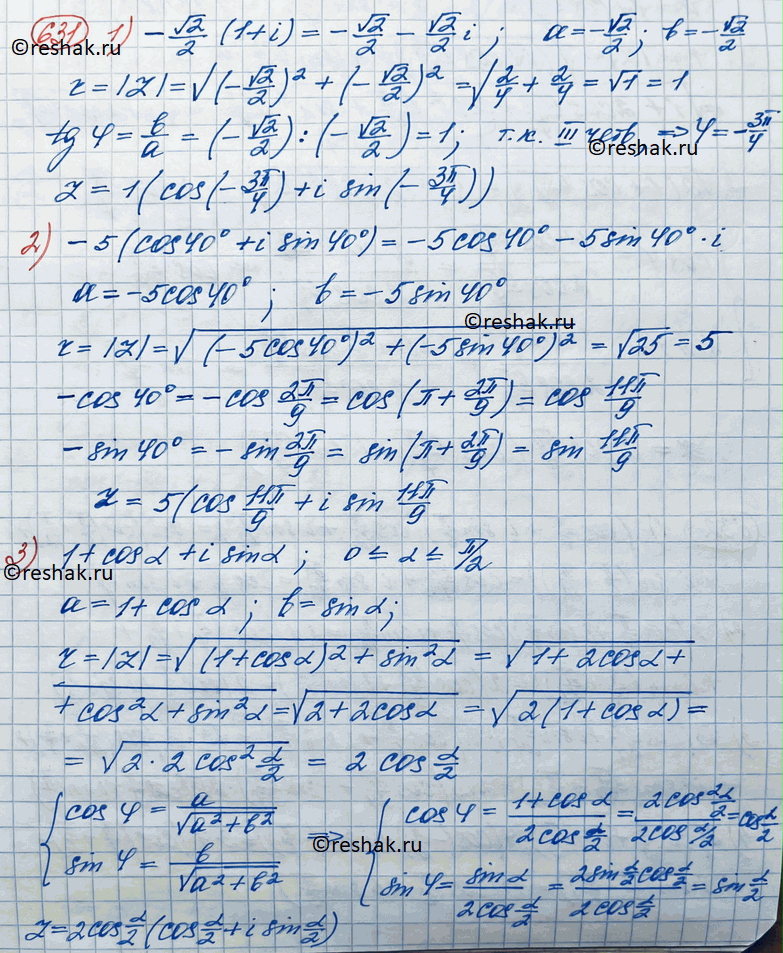 631 1) -√2/2 (1+i) = -√2/2 - √2/2 i; a=-√2/2; b=-√2/2
©reshak.ru
r = |z| = √((-√2/2)² + (-√2/2)²) = √(2/4 + 2/4) = √1 = 1
tg φ = b/a = (-√2/2) : (-√2/2) = 1; т.к. III четв, => φ = -3π/4
©reshak.ru
z = 1(cos(-3π/4) + i sin(-3π/4))
2) -5(cos40° + i sin40°) = -5cos40° - 5sin40°·i
a = -5cos40°; b = -5sin40°
©reshak.ru
r = |z| = √((-5cos40°)² + (-5sin40°)²) = √25 = 5
-cos 40° = -cos 2π/9 = cos(π + 2π/9) = cos 11π/9
-sin 40° = -sin 2π/9 = sin(π + 2π/9) = sin 11π/9
z = 5(cos 11π/9 + i sin 11π/9
3) 1 + cosα + i sinα; 0 ≤ α ≤ π/2
©reshak.ru
a = 1 + cos α; b = sinα;
r = |z| = √((1+cosα)² + sin²α) = √(1 + 2cosα +
+ cos²α + sin²α) = √(2 + 2cosα) = √(2(1 + cosα)) =
= √(2·2cos² α/2) = 2 cos α/2
{ cos φ = a/√(a²+b²) => { cos φ = (1+cosα)/(2cos α/2) = (2cos² α/2)/(2cos α/2) = cos α/2
©reshak.ru
sin φ = b/√(a²+b²) sin φ = sinα/(2cos α/2) = (2sin α/2 cos α/2)/(2cos α/2) = sin α/2
z = 2cos α/2 (cos α/2 + i sin α/2)